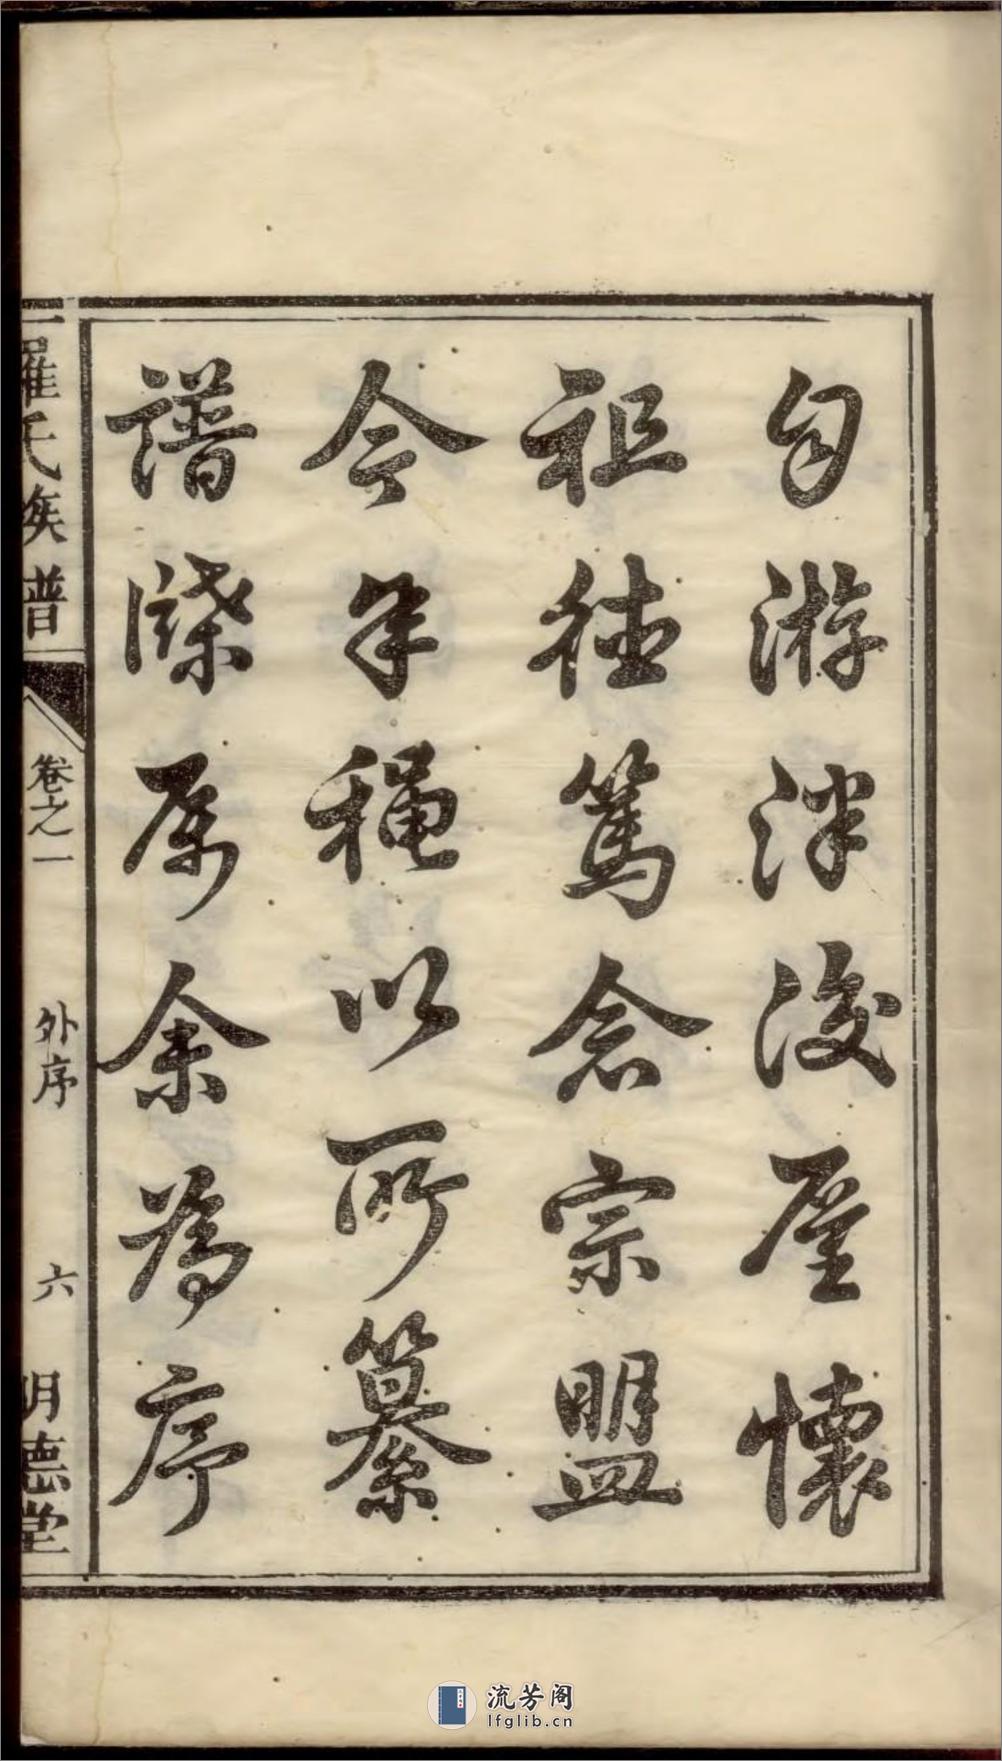 自游泮後屢懷
祖德篤念宗盟
今年穐以所纂
譜牒属余為序
羅氏族譜
卷之一
外序
六
明德堂
流芳阁
lfglib.cn